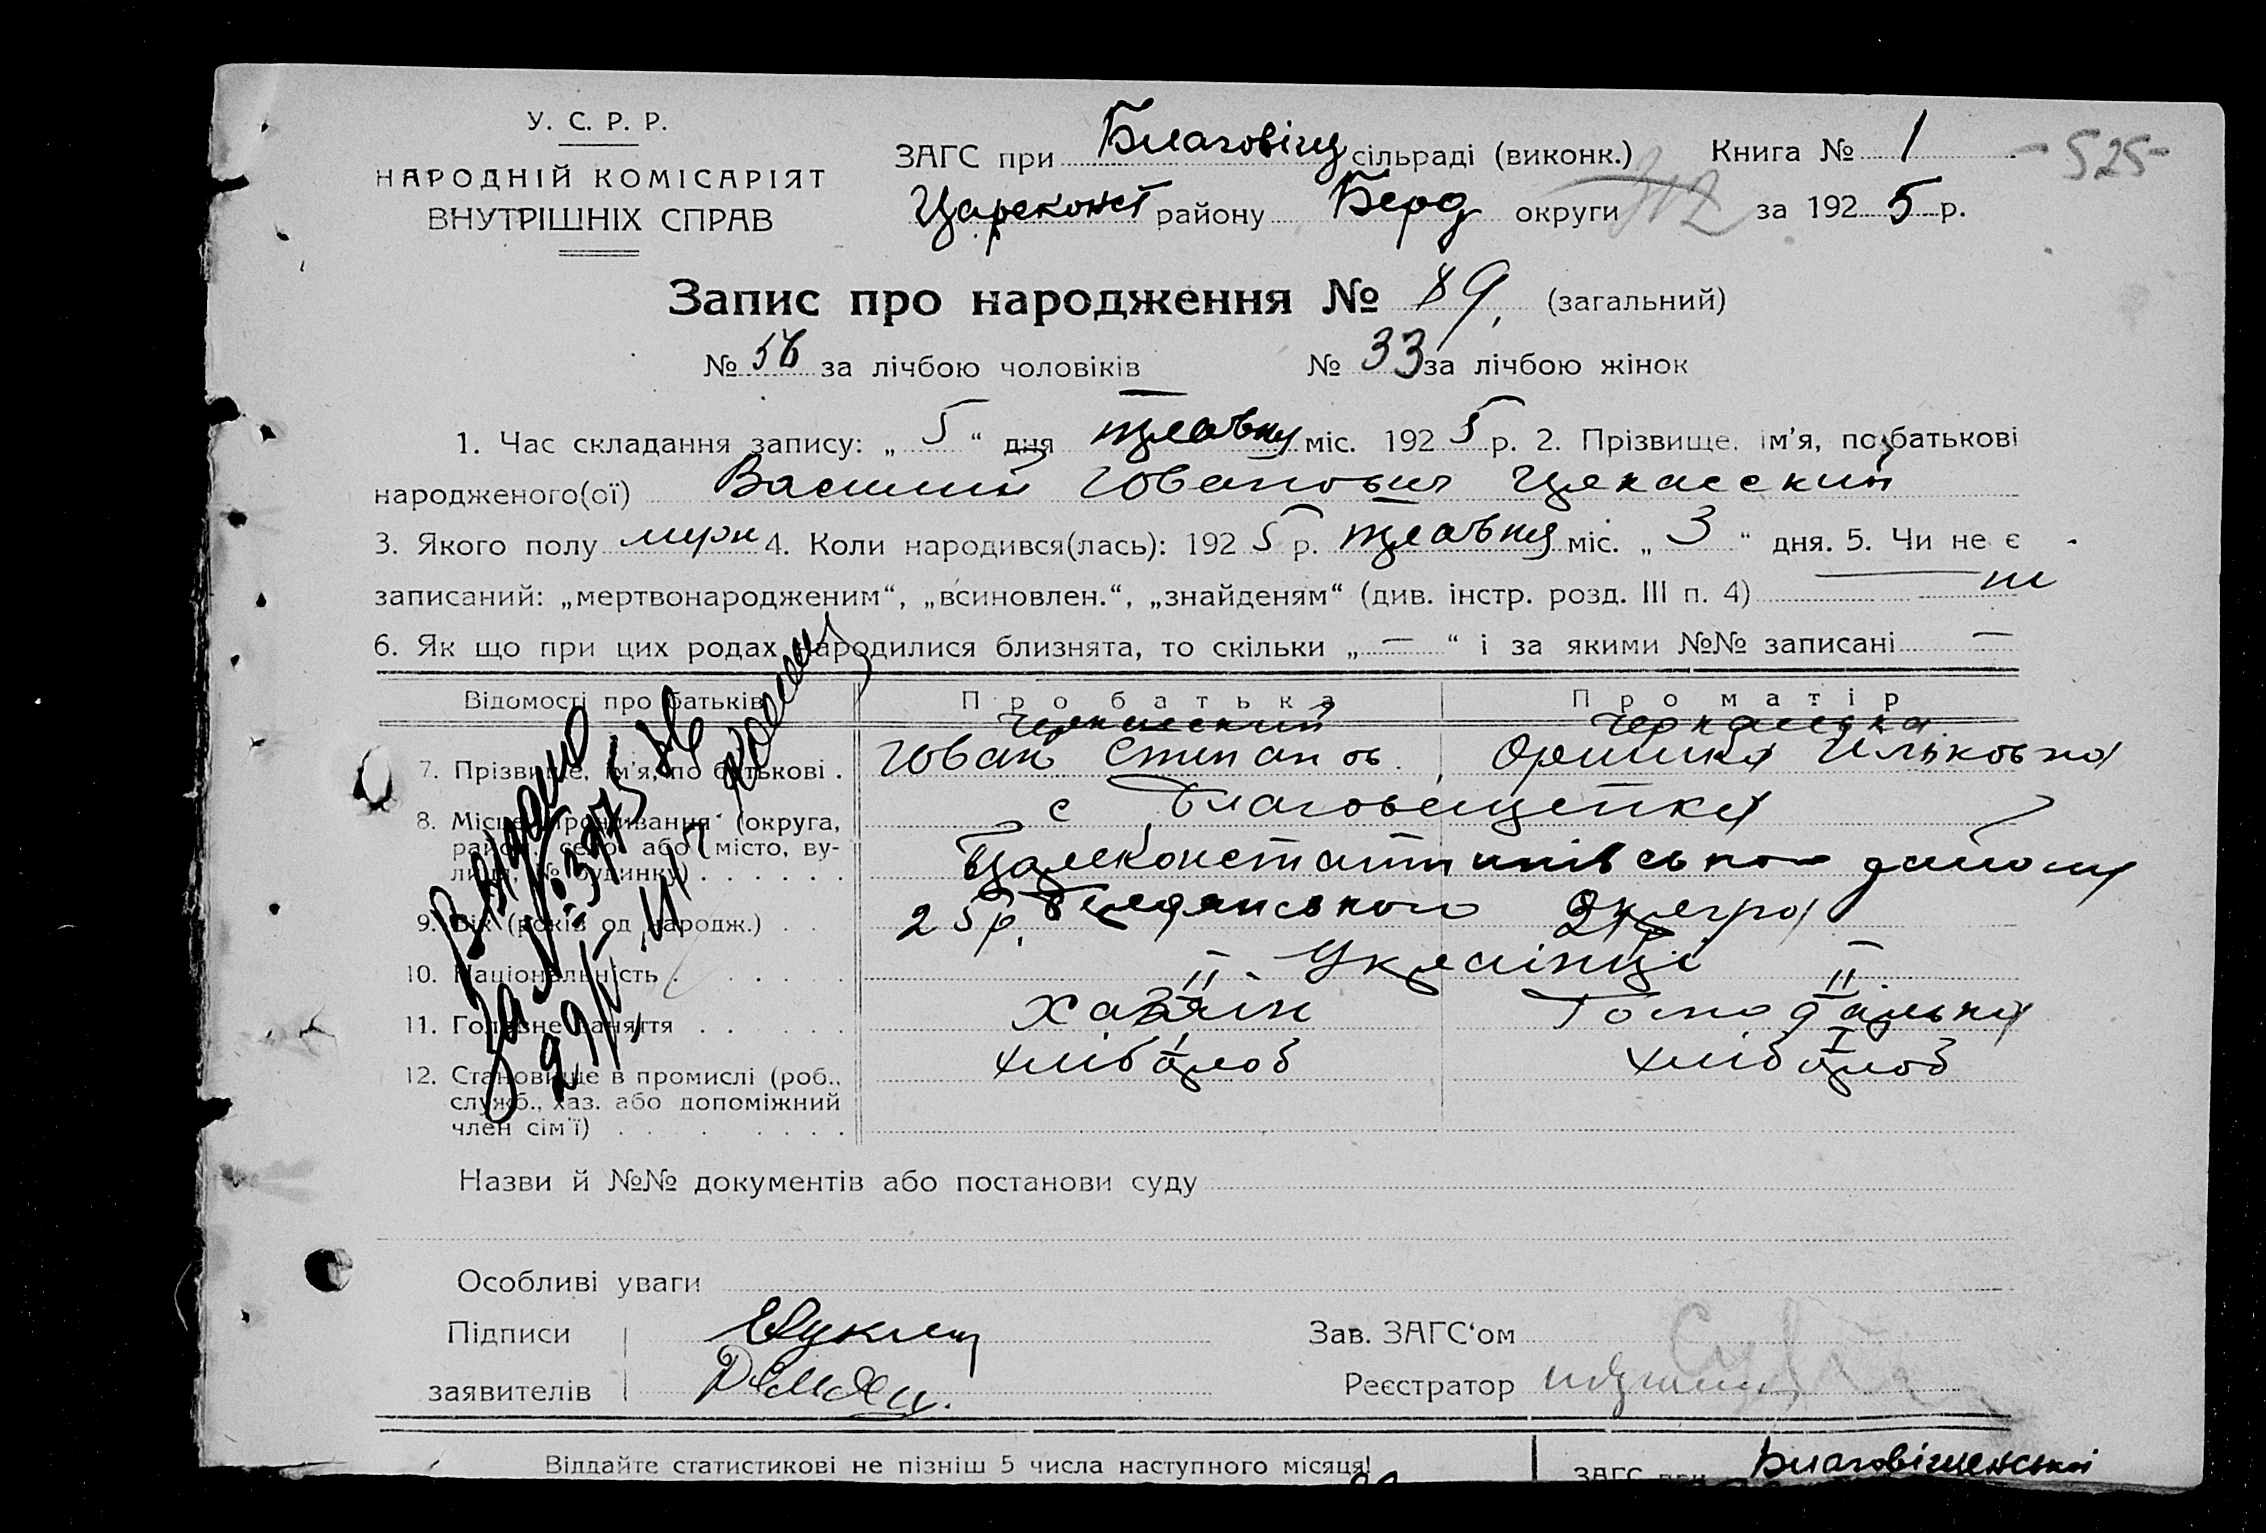 У. С. Р. Р.
НАРОДНІЙ КОМІСАРІЯТ
ВНУТРІШНІХ СПРАВ
ЗАГС при Благовіщ сільраді (виконк.) Книга № 1 - 525 -
Цареконст району Берд округи 312 за 1925 р.
Запис про народження № 89, (загальний)
№ 56 за лічбою чоловіків № 33 за лічбою жінок
1. Час складання запису: „ 5 “ дня травня міс. 1925 р. 2. Прізвище, ім'я, по батькові
народженого(ої) Василий Йованович
3. Якого полу 4. Коли народився(лась): 1925 р. травня міс. „ 3 “ дня. 5. Чи не є
записаний: „мертвонародженим“, „всиновлен.“, „знайденям“ (див. інстр. розд. III п. 4) ні
6. Як що при цих родах народилися близнята, то скільки „ — “ і за якими №№ записані —
Відомості про батьків Про батька Про матір
Черкаский Черкаська
7. Прізвище, ім'я, по батькові . Йован Степанов. Оришка Ильковна
8. Місце проживання (округа, с Благовещенка
район, село або місто, ву-
лиця, № будинку) . . . . . . Цареконстантинівського району
9. Вік (років од народж.) . . 25 р. Бердянського Округи
10. Національність . . . . . II - Украінці II
11. Головне заняття . . . . . Хазяін
12. Становище в промислі (роб., хлібороб хлібороб
служб., хаз. або допоміжний
член сім'ї) . . . . . . . .
Видано
за №
Назви й №№ документів або постанови суду
Особливі уваги
Підписи Зав. ЗАГС'ом
заявителів Реєстратор
Віддайте статистикові не пізніш 5 числа наступного місяця!
ЗАГС при Благовіщенській